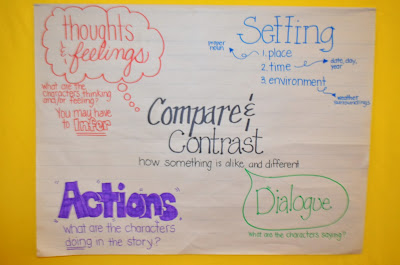 thoughts
& feelings
what are the
characters thinking
and/or feeling?
You may have
to Infer
Setting
proper
noun
1. place
2. time
date, day,
year
3. environment
weather
surroundings
Compare &
Contrast
how something is alike and different
Actions
what are the characters
doing in the story?
Dialogue
what are the characters saying?